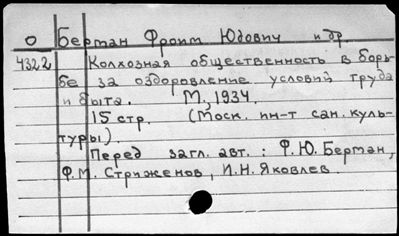 О Берман Фроим Юдович и др.
4322 Колхозная общественность в борь-
бе за оздоровление условий труда
и быта. М., 1934.
15 стр. (Моск. ин-т сан. куль-
туры).
Перед загл. авт.: Ф.Ю. Берман,
Ф.М. Стриженов, И.Н. Яковлев.